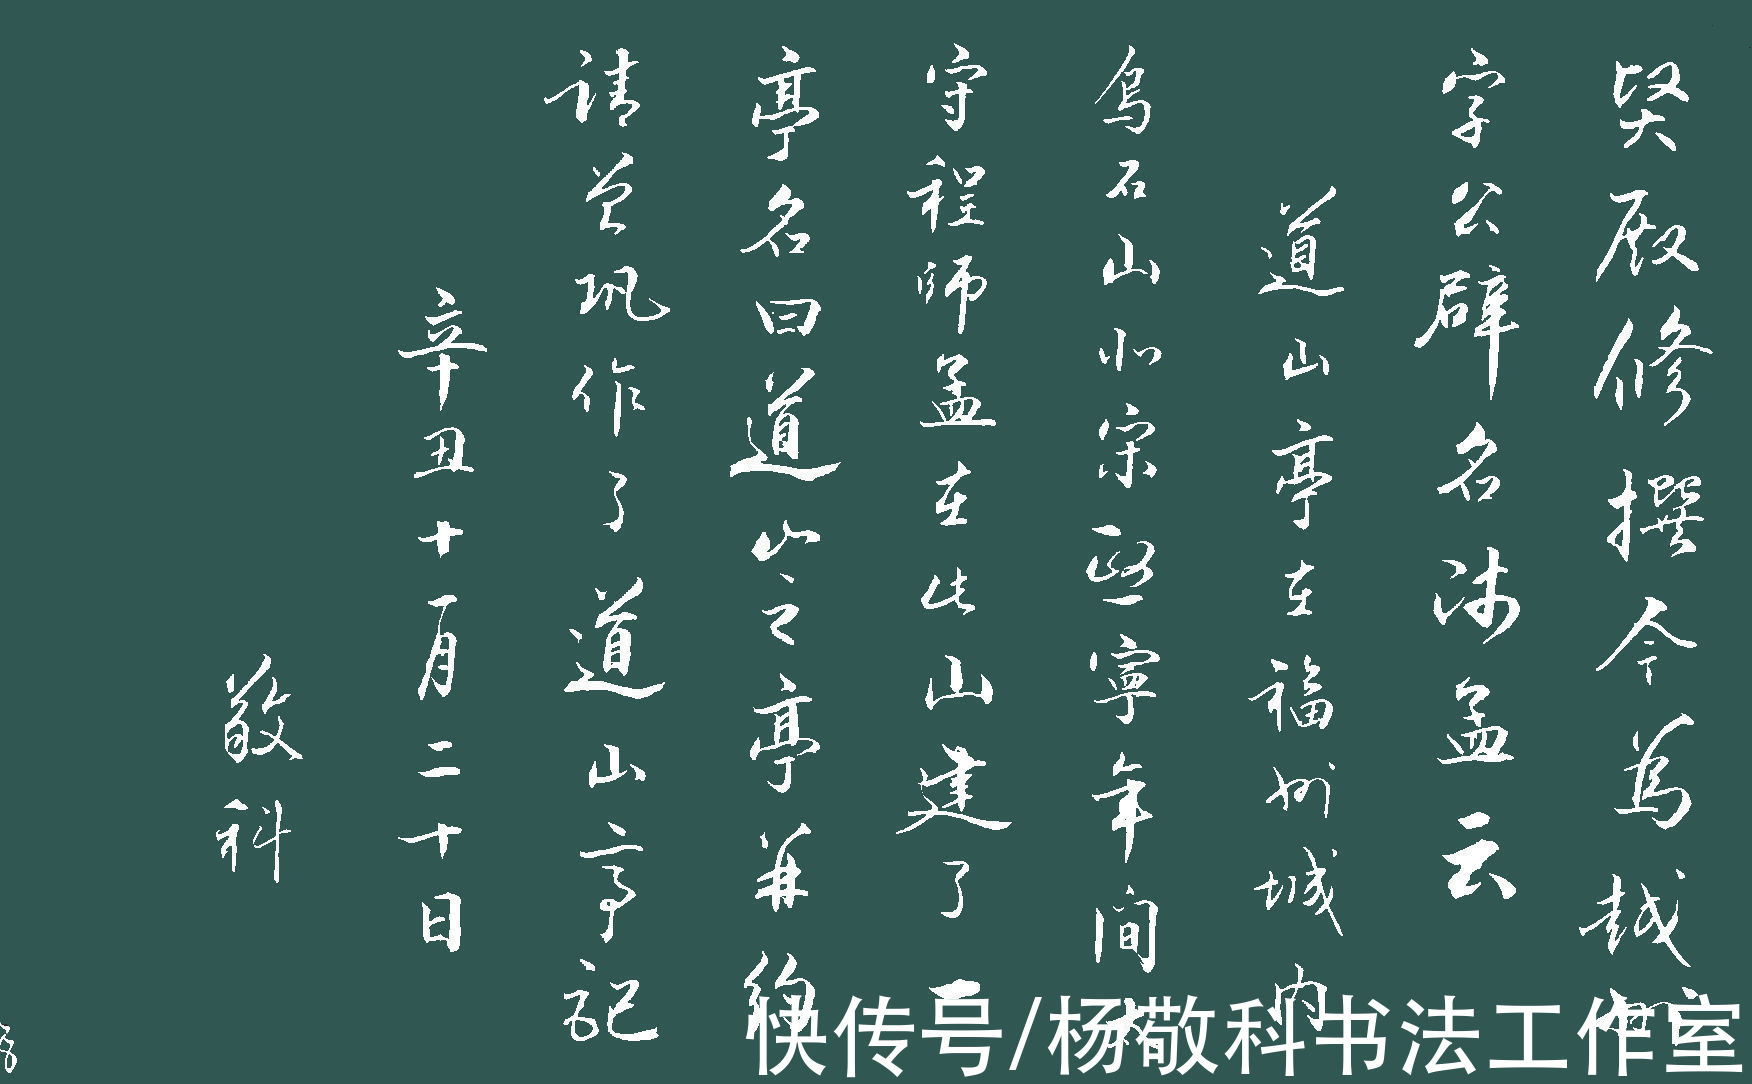 贤殿修撰今为越州
字公辟名师孟云
道山亭在福州城内
乌石山北宋熙宁年间太
守程师孟在此山建了一
亭名曰道山之亭并约
请曾巩作了道山亭记
辛丑十月二十日
敬科
快传号/杨敬科书法工作室